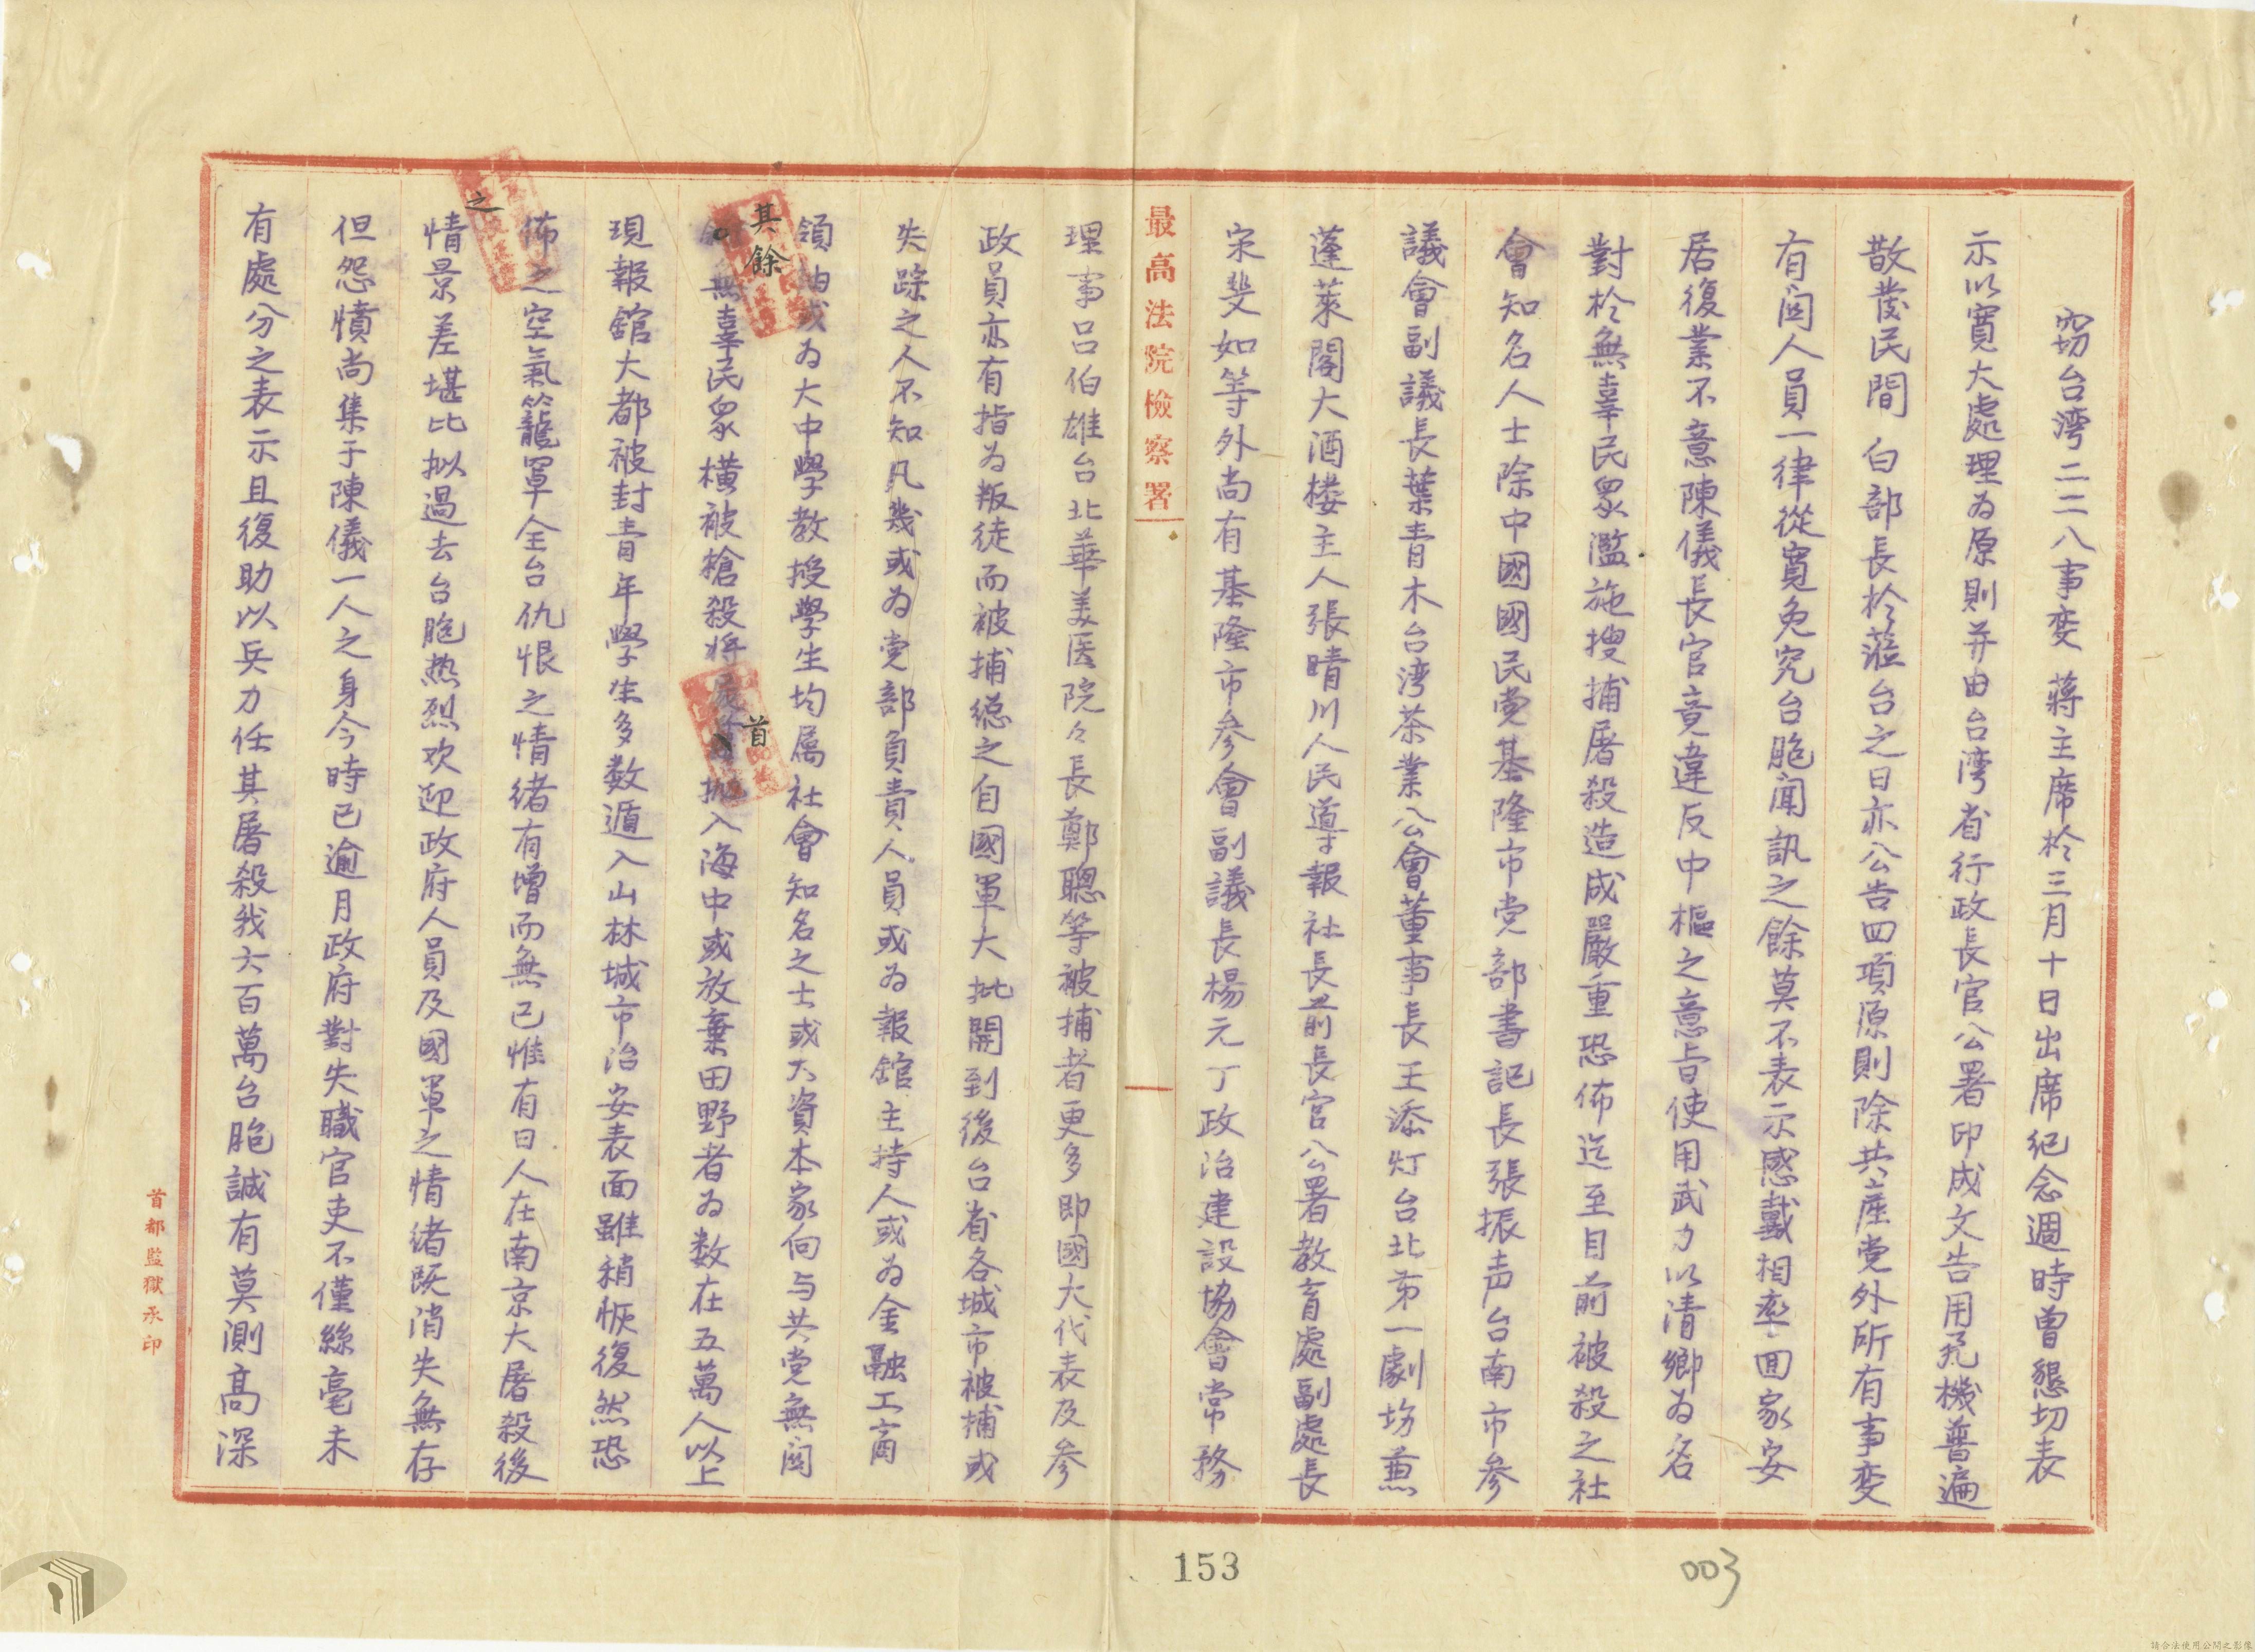 窃台湾二二八事变 蔣主席於三月十日出席纪念週時曾懇切表
示以寬大處理为原則并由台湾省行政長官公署印成文告用飛機普遍
散發民間 白部長於蒞台之日亦公告四項原則除共產党外所有事变
有関人員一律從寬免究台胞闻訊之餘莫不表示感戴相率回家安
居復業不意陳儀長官竟違反中樞之意旨使用武力以清鄉为名
對於無辜民眾濫施搜捕屠殺造成嚴重恐佈迄至目前被殺之社
會知名人士除中國國民党基隆市党部書記長張振声台南市参
議會副議長葉青木台湾茶業公會董事長王添灯台北苐一劇坊兼
蓬萊閣大酒楼主人張晴川人民導報社長前長官公署教育處副處長
宋斐如等外尚有基隆市参會副議長楊元丁政治建設協會常務
最高法院檢察署
理事吕伯雄台北華美医院々長鄭聰等被捕者更多即國大代表及参
政員亦有指为叛徒而被捕總之自國軍大批開到後台省各城市被捕或
失踪之人不知凡幾或为党部負責人員或为報舘主持人或为金融工商
領袖或为大中學教授學生均属社會知名之士或大資本家向与共党無関
其餘
無辜民眾横被槍殺将
首
抛入海中或放棄田野者为数在五萬人以上
現報舘大都被封青年學生多数遁入山林城市治安表面雖稍恢復然恐
佈之空氣籠罩全台仇恨之情绪有增而無已惟有日人在南京大屠殺後
之
情景差堪比拟過去台胞热烈欢迎政府人員及國軍之情绪既消失無存
但怨憤尚集于陳儀一人之身今時已逾月政府對失職官吏不僅絲毫未
有處分之表示且復助以兵力任其屠殺我六百萬台胞誠有莫測高深
首都監獄承印
153
003
請合法使用公開之影像